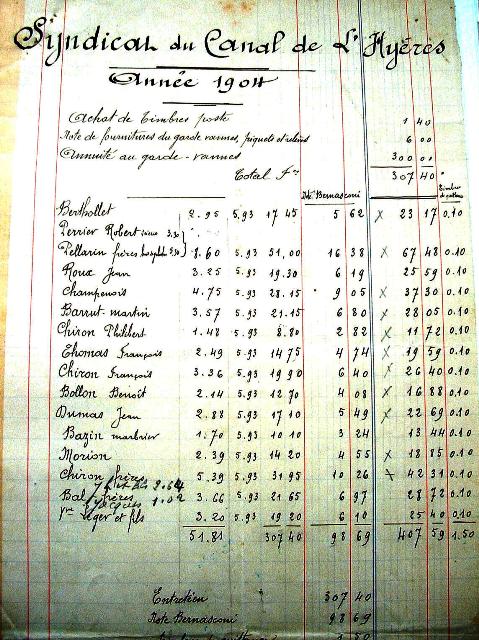 Syndicat du Canal de L'Hyères
Année 1904
Achat de timbres poste 1 40
Note de fournitures du garde vannes, piquets et 6 00
Annuité au garde-vannes 300 00
Total Frs 307 40
Note Bernasconi
Timbre de
Berthollet 2.95 5.93 17 45 5 62 x 23 17 0.10
Perrier Robert 3.30
Pellarin frères 5.30 8.60 5.93 51,00 16 38 x 67 48 0.10
Roux Jean 3.25 5.93 19.30 6 19 25 59 0.10
Champenois 4.75 5.93 28.15 9 05 x 37 30 0.10
Barrut martin 3.57 5.93 21.15 6 80 x 28 05 0.10
Chiron Philibert 1.48 5.93 8.80 2 82 x 11 72 0.10
Thomas François 2.49 5.93 14 75 4 74 x 19 59 0.10
Chiron François 3.36 5.93 19 90 6 40 x 26 40 0.10
Bollon Benoît 2.14 5.93 12 70 4 08 x 16 88 0.10
Dumas Jean 2.88 5.93 17 10 5 49 x 22 69 0.10
Bazin marbrier 1.70 5.93 10 10 3 24 13 44 0.10
Morion 2.39 5.93 14 20 4 55 x 18 85 0.10
Chiron frères 5.39 5.93 31 95 10 26 x 42 31 0.10
Bal frères 1.02 3.66 5.93 21 65 6 97 28 72 0.10
Vve Léger et fils 3.20 5.93 19 20 6 10 25 40 0.10
51.81 307 40 98 69 407 59 1.50
Entretien 307 40
Note Bernasconi 98 69